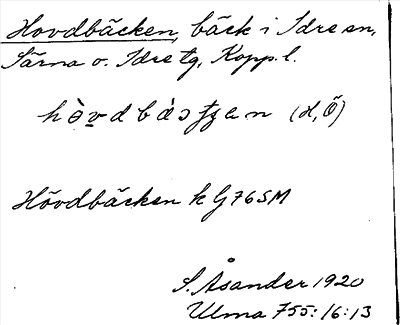 Hovdbäcken, bäck i Idre sn,
Särna o. Idre tg, Kopp. l.
(H, Ö)
Hövdbäcken k G76SM
S. Åsander 1920
Ulma 755: 16:13